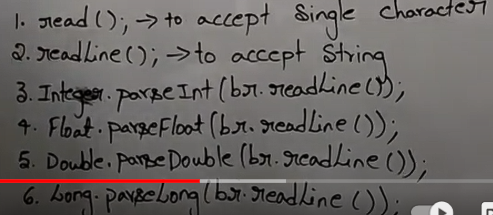 1. read(); → to accept Single character
2. readLine(); → to accept String
3. Integer.parseInt(br.readLine());
4. Float.parseFloat(br.readLine());
5. Double.parseDouble(br.readLine());
6. Long.parseLong(br.readLine());